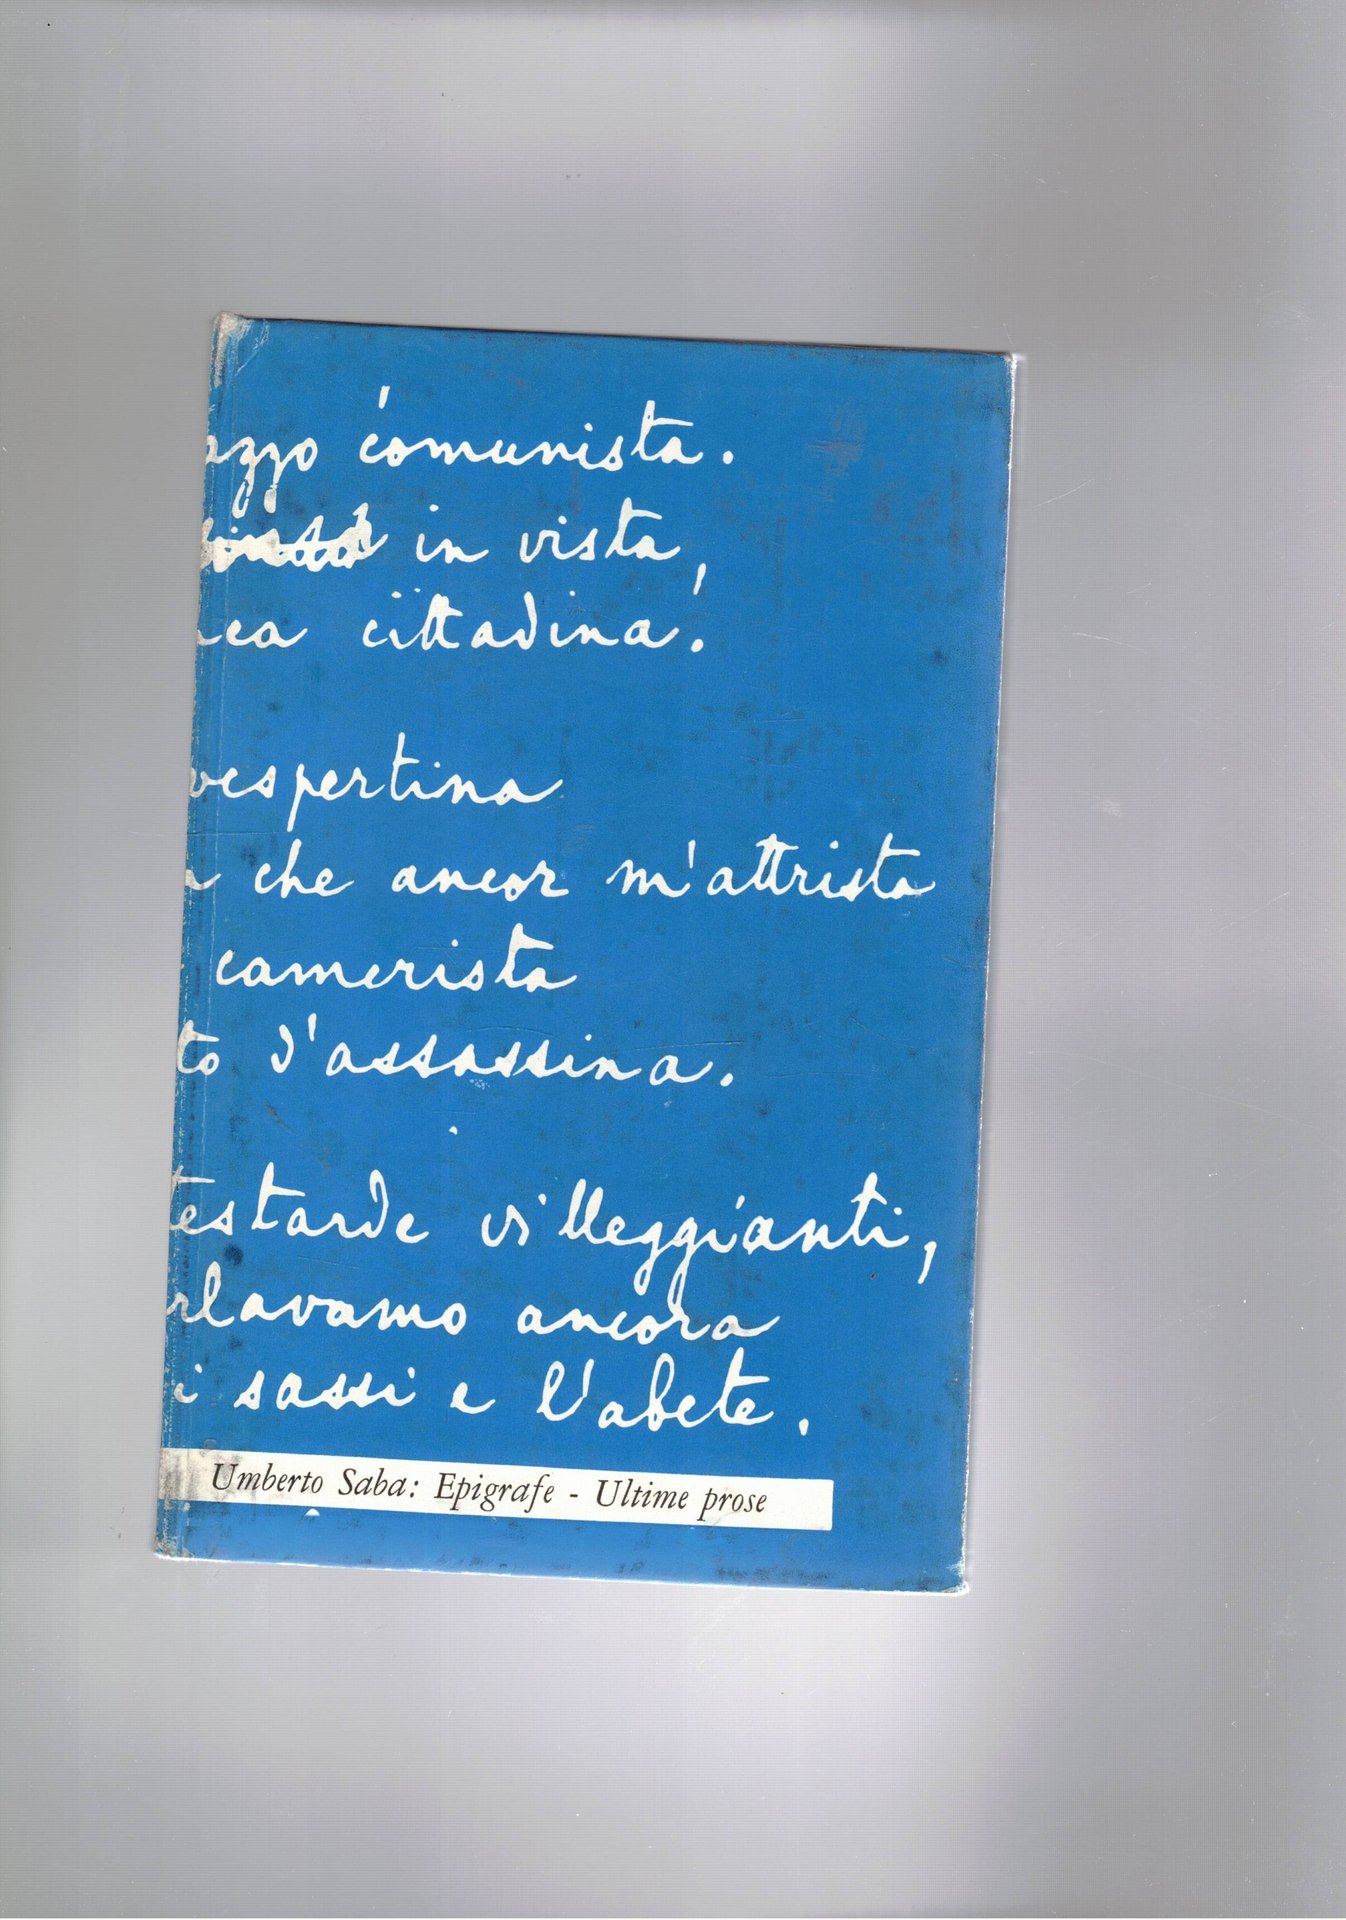 azzo comunista.
in vista,
nca cittadina!
vespertina
a che ancor m'attrista
camerista
to d'assassina.
testarde villeggianti,
rlavamo ancora
i sassi e l'abete.
Umberto Saba: Epigrafe - Ultime prose